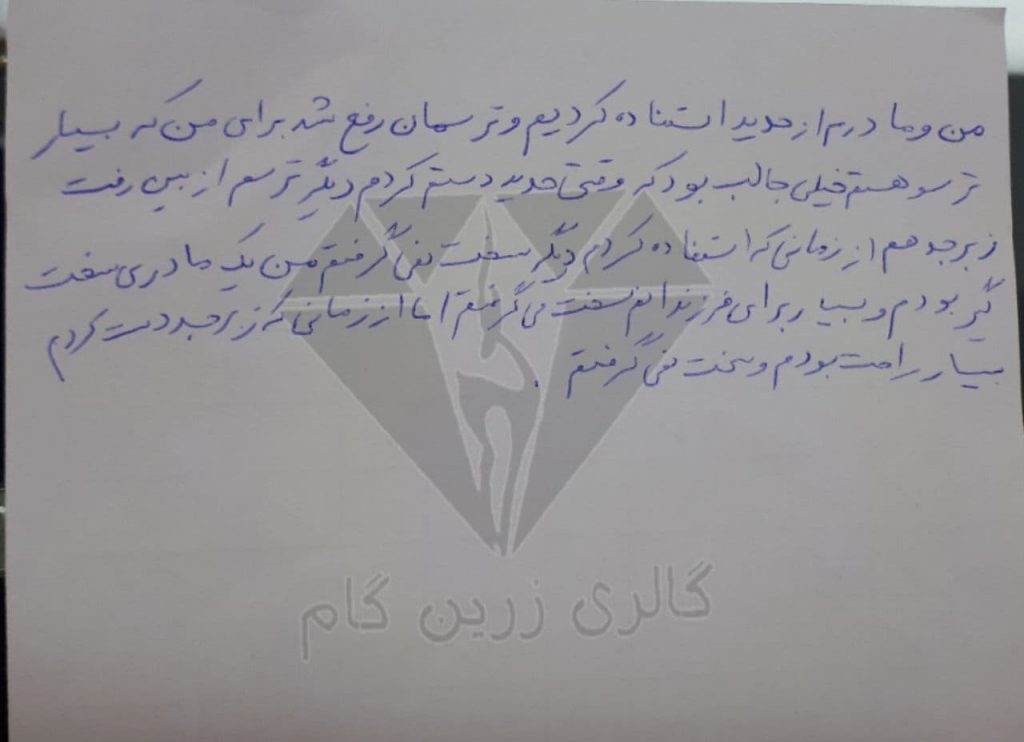 من و مادرم از حدید استفاده کردیم و ترسمان رفع شد برای من که بسیار
ترسو هستم خیلی جالب بود که وقتی حدید دستم کردم دیگر ترسم از بین رفت
زبرجد هم از زمانی که استفاده کردم دیگر سخت نمی گرفتم من یک مادری سخت
گیر بودم و بسیار برای فرزندانم سخت می گرفتم اما از زمانی که زبرجد دست کردم
بسیار راحت بودم و سخت نمی گرفتم .
گالری زرین گام